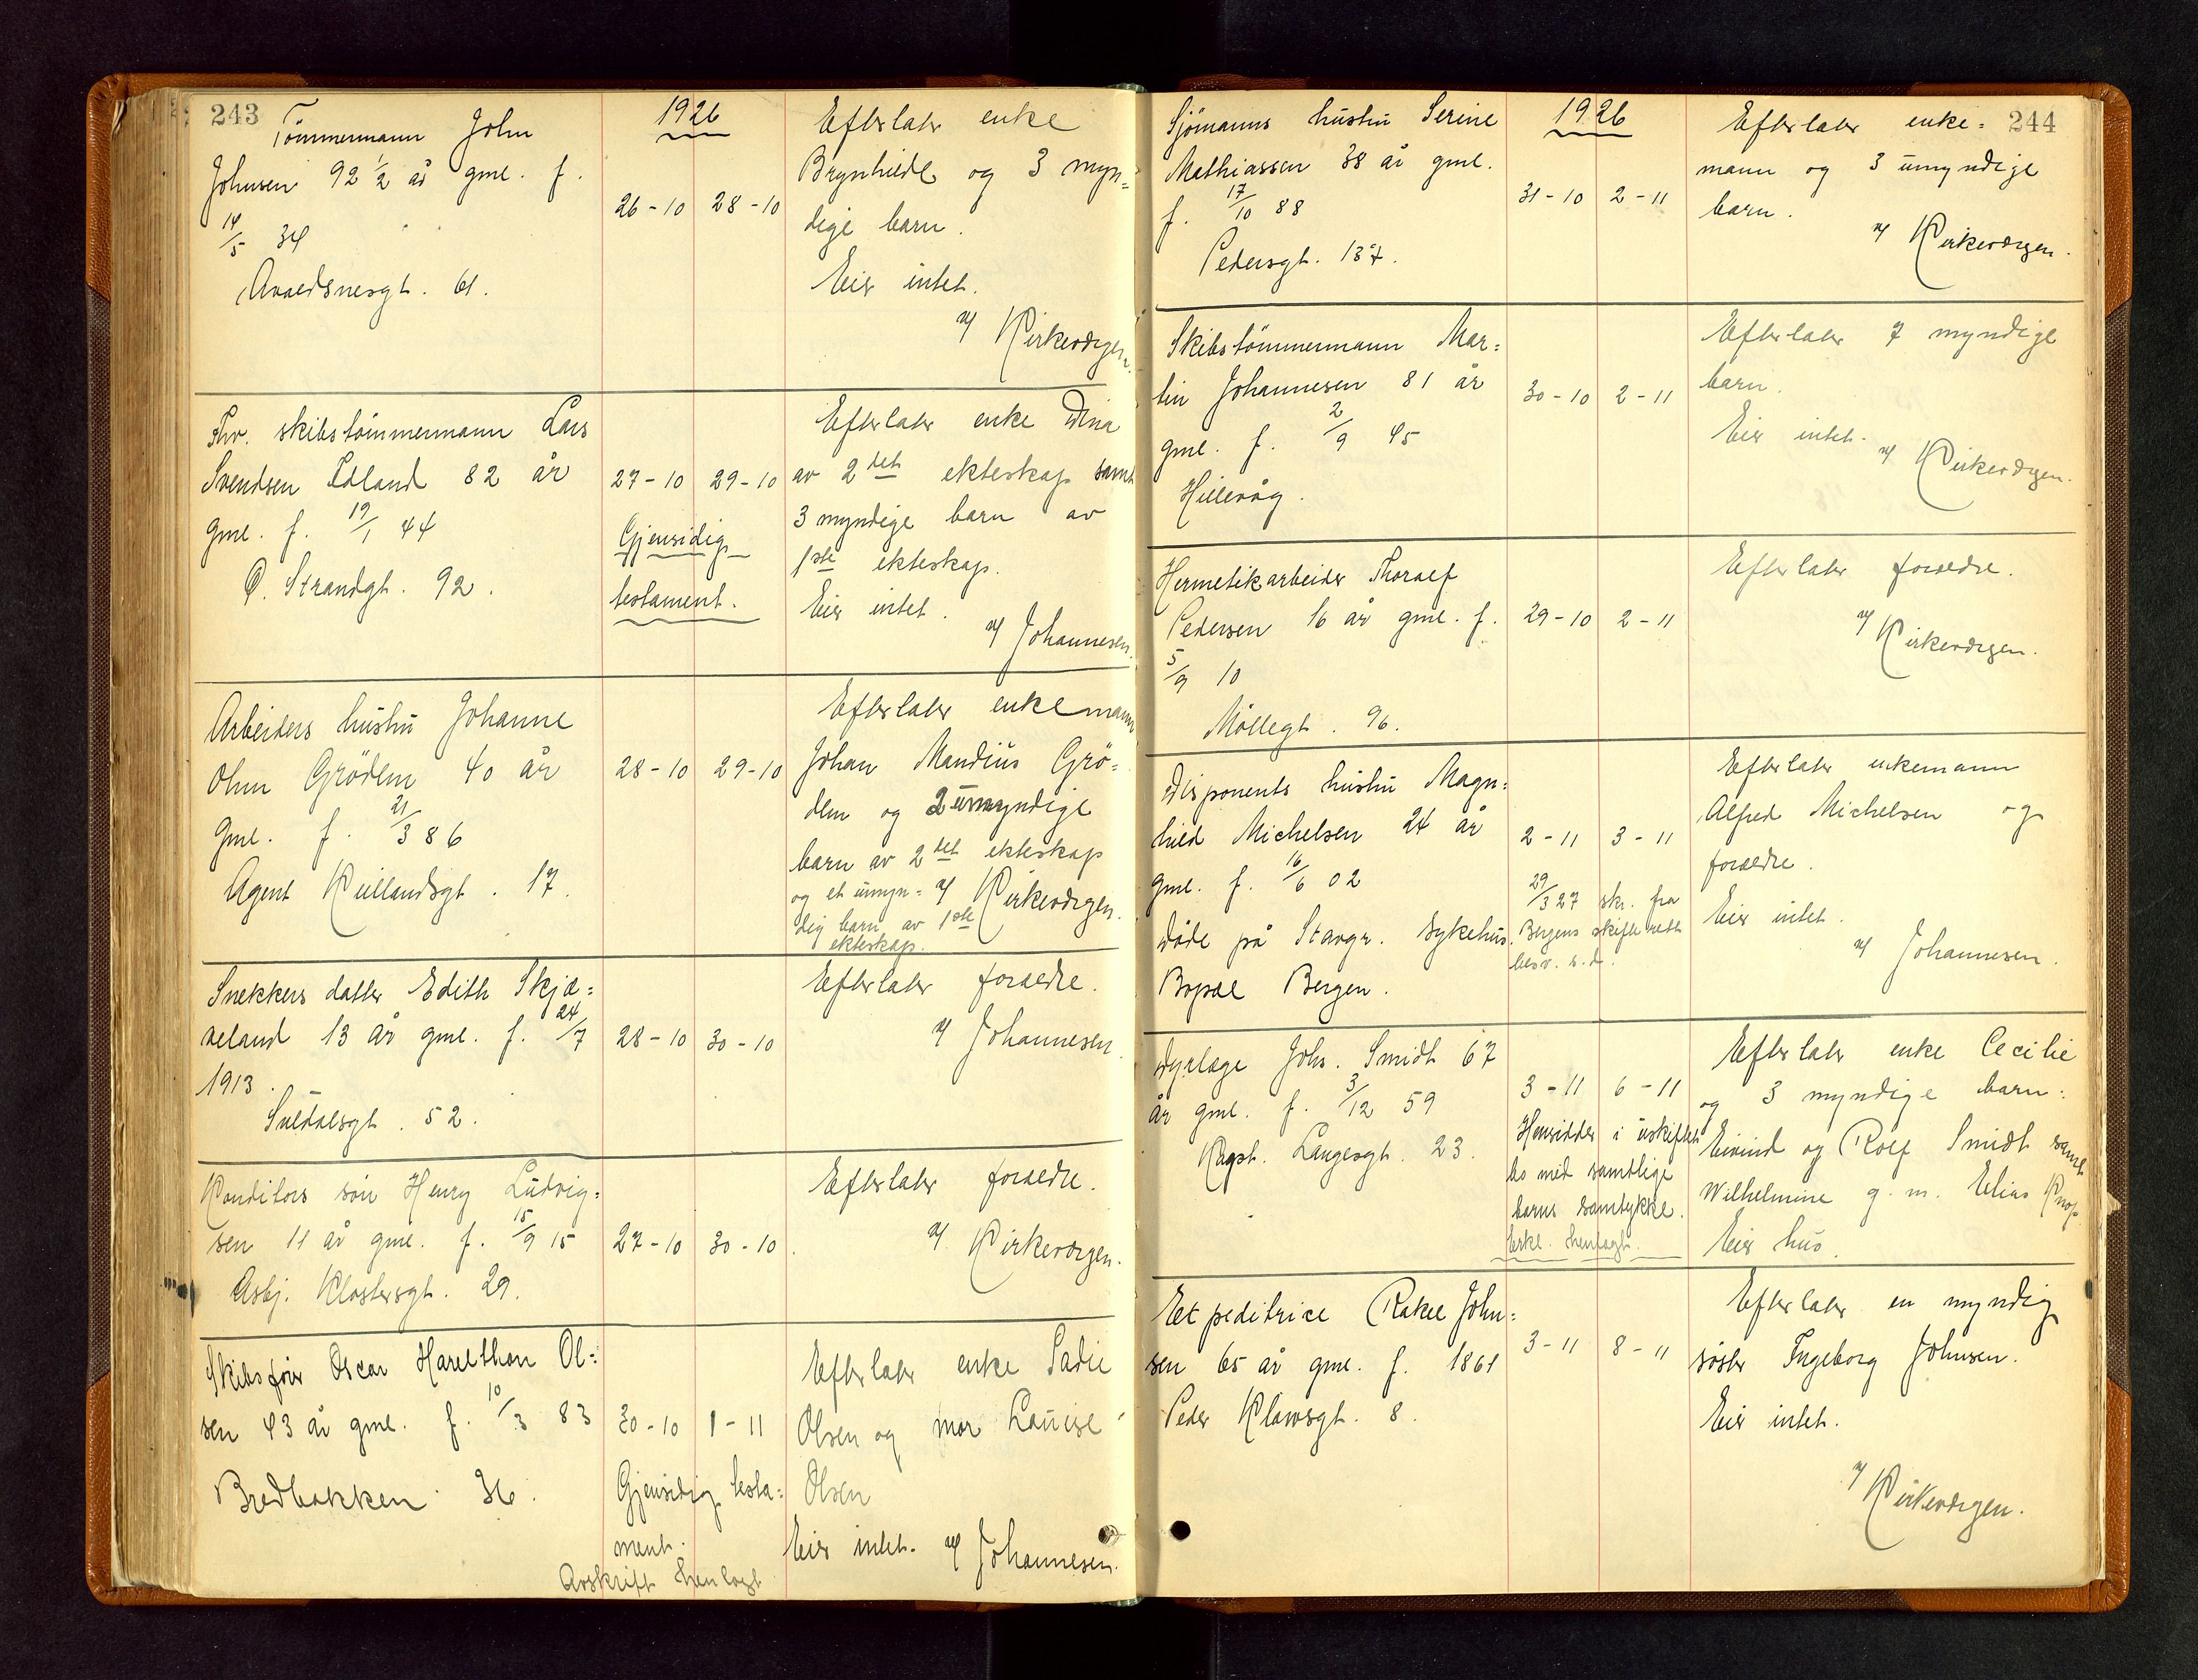 243
1926
Tömmermann John
Johnsen 92 1/2 år gml. f.
14/5 34
Avaldsnesgt. 61.
26-10 28-10
Efterlater enke
Brynhilde og 3 myn=
dige barn.
Eier intet.
Kirkevergen.
Fhv. skibstömmermann Lars
Svendsen Edland 82 år
gml. f. 19/1 44
Ö. Strandgt. 92.
27-10 29-10
Gjensidig
testament.
Efterlater enke Dina
av 2det ekteskap samt
3 myndige barn av
1ste ekteskap.
Eier intet.
Johannesen.
Arbeiders hustru Johanne
Grödem 40 år
gml. f. 21/3 86
Agent Kiellandsgt. 17.
28-10 29-10
Efterlater enkemann
Johan Mandius Grö=
dem og 2 umyndige
barn av 2det ekteskap
og et umyn=
dig barn av 1ste
ekteskap.
Kirkevergen.
Snekkers datter Edith Skjæ=
veland 13 år gml. f. 24/7
1913.
Suldalsgt. 52.
28-10 30-10
Efterlater forældre.
Johannesen.
Konditors sön Henry Ludvig=
sen 11 år gml. f. 15/9 15
Asbj. Klostersgt. 29.
27-10 30-10
Efterlater forældre.
Kirkevergen.
Skibsförer Oscar Ol=
sen 43 år gml. f. 10/3 83
Bredbakken 36.
30-10 1-11
Gjensidig testa=
ment.
Avskrift henlagt
Efterlater enke Sadie
Olsen og mor Louise
Olsen
Eier intet. Johannesen.
244
1926
Sjömanns hustru Serine
Mathiassen 38 år gml.
f. 17/10 88
Pedersgt. 137.
31-10 2-11
Efterlater enke=
mann og 3 umyndige
barn.
Kirkevergen.
Skibstömmermann Mar=
tin Johannesen 81 år
gml. f. 2/9 45
Hillevåg.
30-10 2-11
Efterlater 7 myndige
barn.
Eier intet.
Kirkevergen.
Hermetikarbeider Thoralf
Pedersen 16 år gml. f.
5/9 10
Möllegt. 96.
29-10 2-11
Efterlater forældre.
Kirkevergen.
Disponents hustru Magn=
hild Michelsen 24 år
gml. f. 16/6 02
Döde på Stavgr. sykehus.
Bopæl Bergen.
2-11 3-11
29/3 27 skr. fra
Bergens skifterett
besv. s.d.
Efterlater enkemann
Alfred Michelsen og
forældre.
Eier intet.
Johannesen.
Dyrlæge Johs. Smidt 67
år gml. f. 3/12 59
Kapt. Langesgt. 23.
3-11 6-11
Hensidder i uskiftet
bo med samtlige
barns samtykke.
Erkl. henlagt.
Efterlater enke Cecilie
og 3 myndige barn:
Eivind og Rolf Smidt samt
Wilhelmine g.m. Elias Knop.
Eier hus.
Ekspeditrice Rakel John=
sen 65 år gml. f. 1861
Peder Klowsgt. 8.
3-11 8-11
Efterlater en myndig
söster Ingeborg Johnsen.
Eier intet.
Kirkevergen.